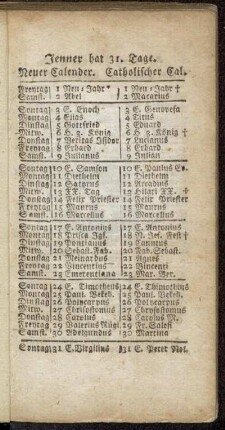 Jenner hat 31. Tage.
Neuer Calender. Catholischer Cal.
Freytag 1 Neu-Jahr 1 Neu-Jahr †
Samst. 2 Abel 2 Macarius
Sontag 3 E. Enoch 3 E. Genovefa
Montag 4 Elias 4 Titus
Dinstag 5 Gottfried 5 Eduard
Mitw. 6 H. 3. König 6 H. 3. König †
Donstag 7 Veritas Isidor 7 Lucianus
Freytag 8 Erhard 8 Erhard
Samst. 9 Julianus 9 Julian
Sontag 10 E. Samson 10 E. Paulus Es.
Montag 11 Diethelm 11 Diethelm
Dinstag 12 Satyrus 12 Arcadius
Mitw. 13 XX. Tag 13 Hilari XX. †
Donstag 14 Felix Priester 14 Felix Priester
Freytag 15 Maurus 15 Maurus
Samst. 16 Marcellus 16 Marcellus
Sontag 17 E. Antonius 17 E. Antonius
Montag 18 Prisca Jgf. 18 N. Jes. Fest †
Dinstag 19 Pontianus 19 Canutus
Mitw. 20 Sebast. Fab. 20 Sebast. Fab.
Donstag 21 Meinardus 21 Agnes
Freytag 22 Vincenti 22 Vincenti
Samst. 23 Emerentiana 23 Mar. Ver.
Sontag 24 E. Timotheus 24 E. Thimotheus
Montag 25 Paul. Bekeh. 25 Paul. Bekeh.
Dinstag 26 Polycarpus 26 Polycarpus
Mitw. 27 Chrysostomus 27 Chrysostomus
Donstag 28 Carolus 28 Carolus M.
Freytag 29 Valerius 29 Fr. Salesi
Samst. 30 Adelgundus 30 Martina
Sontag 31 E. Virgilius 31 E. Peter Nol.